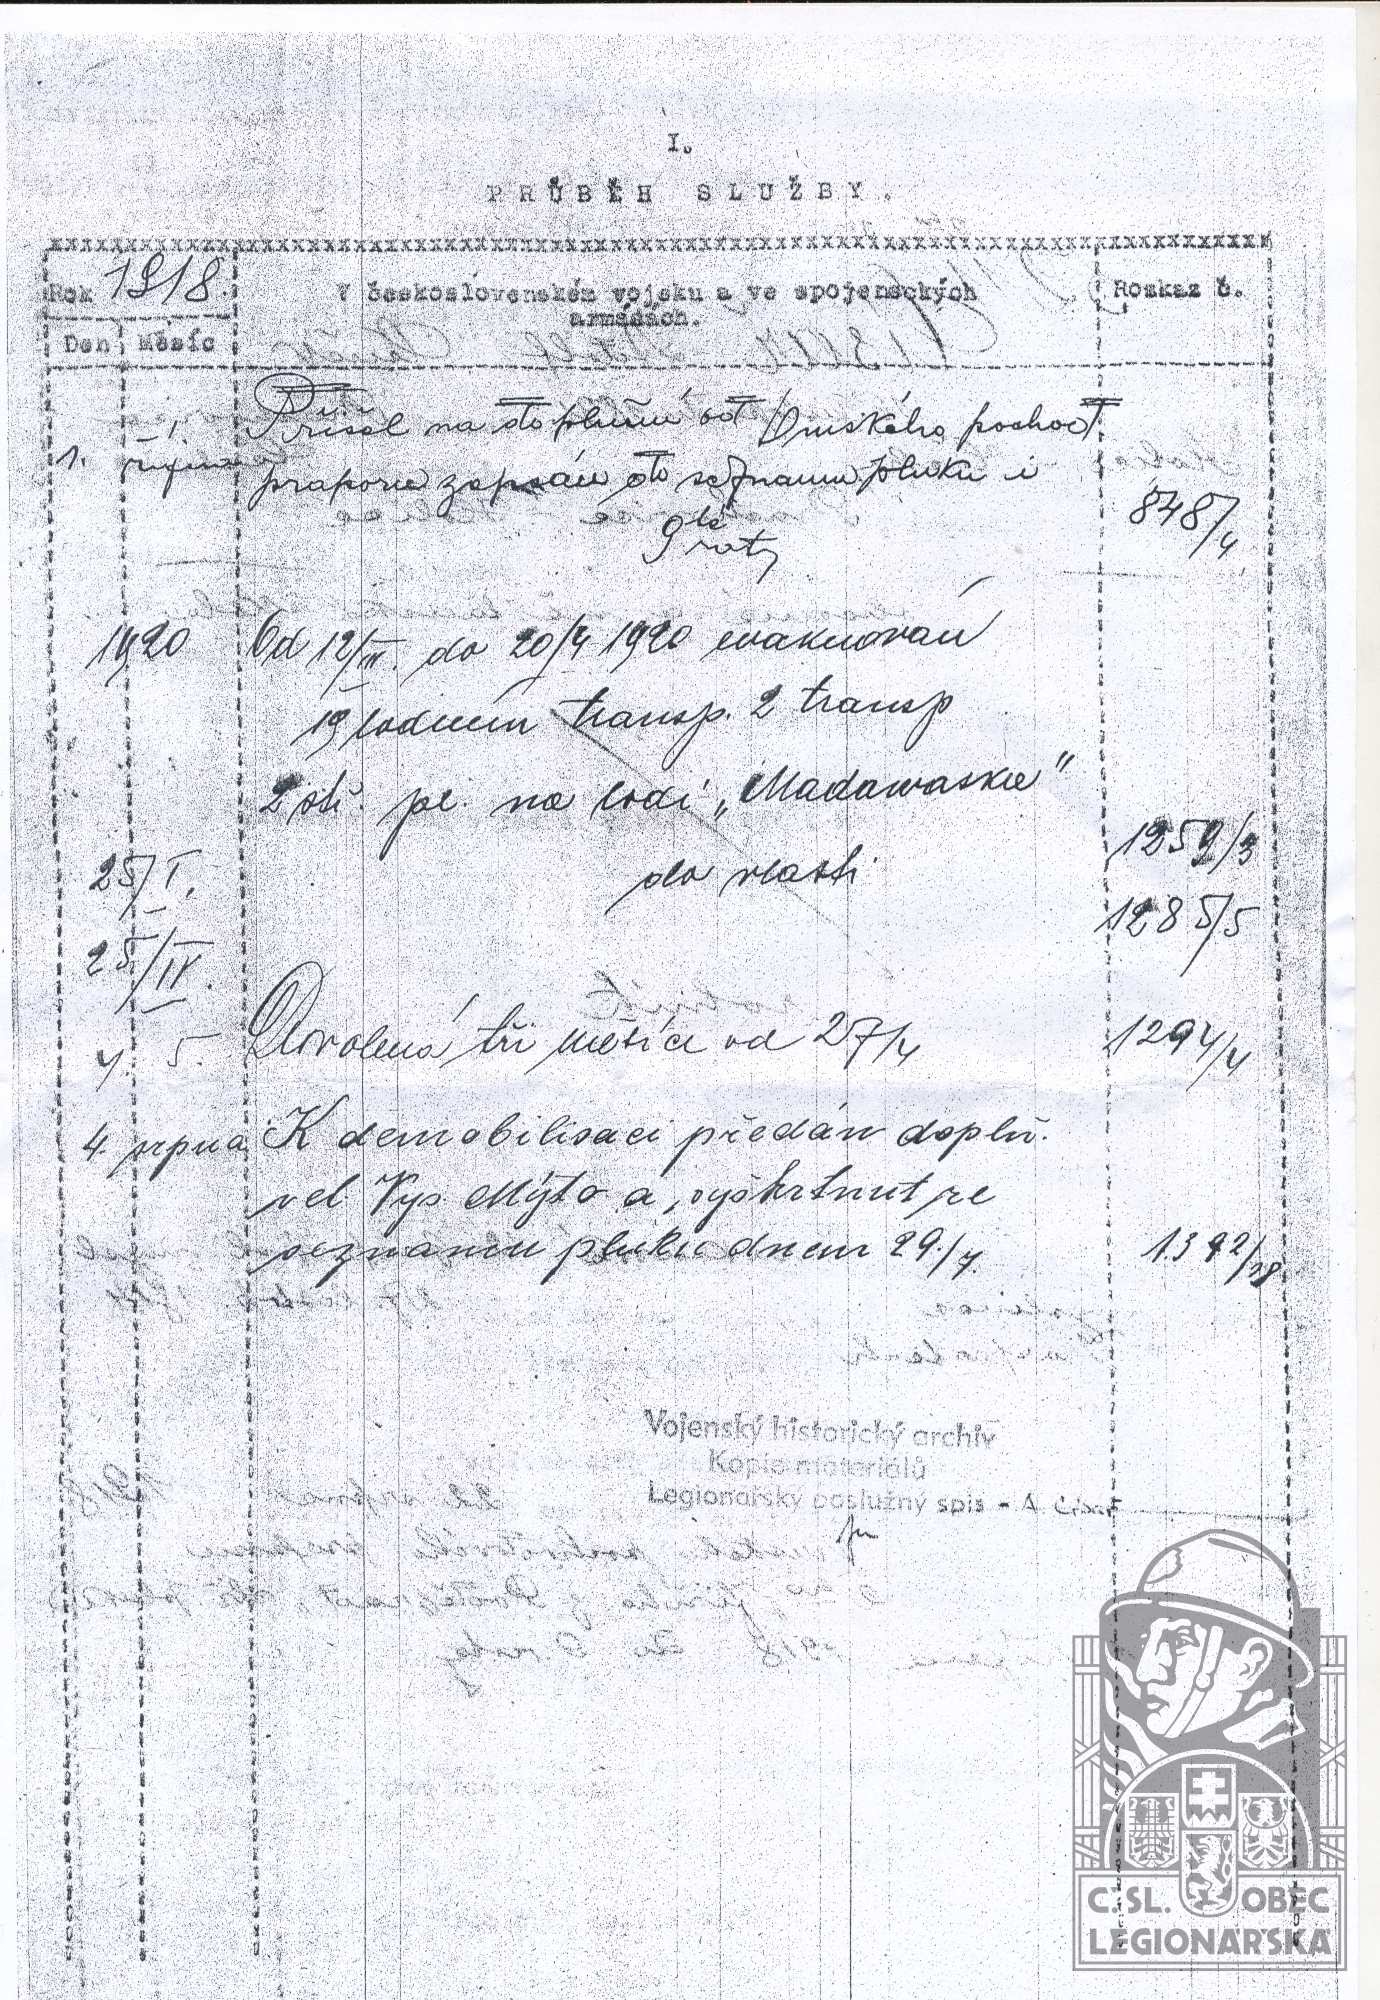 I.
PRŮBĚH SLUŽBY.
Rok 1918.
V československém vojsku a ve spojeneckých
armádách.
Rozkaz č.
Den Měsíc
1. října Přišel na doplnění od Omského pochod.
praporu zapsán do seznamu pluku i
9té roty
848/4
1920 Od 12/III. do 20/4 1920 evakuován
19 lodním transp. 2 transp
2 stř. pl. na lodi „Madawaska"
do vlasti
25/I. 1259/3
25/IV. 1285/5
4. 5. Dovolená tři měsíce od 27/4 1294/4
4. srpna K demobilisaci předán doplň.
vel Vys. Mýto a vyškrtnut ze
seznamu pluku dnem 29./7. 1392/28
Vojenský historický archiv
Kopie materiálů
Legionářský poslužný spis - A
Č.SL. OBEC
LEGIONÁŘSKÁ